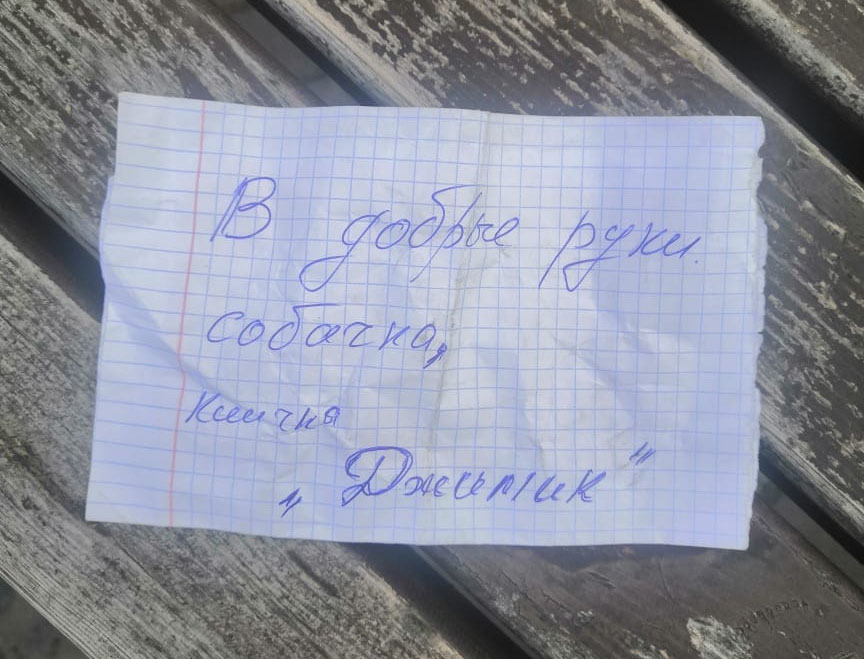 В добрые руки.
собачка,
кличка
„Джимик"